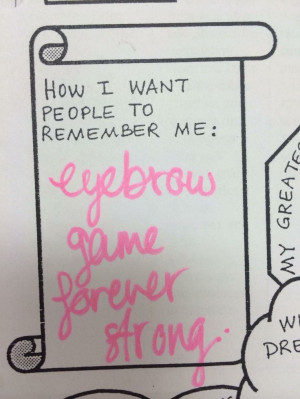 HOW I WANT
PEOPLE TO
REMEMBER ME:
eyebrow
game
forever
strong.
MY GREATES
WI
DRE